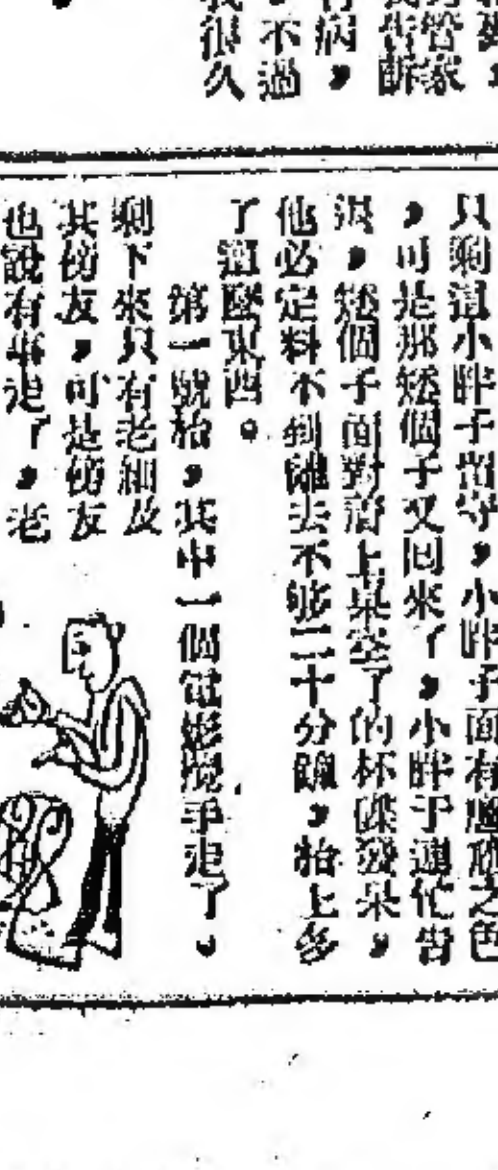 管家
告訴
有病，
不過
我很久
只剩這小胖子留守，小胖子面有尷尬之色
，可是那矮個子又回來了，小胖子連忙告
退，矮個子面對着上桌空了的杯碟發呆，
他必定料不到離去不够二十分鐘，枱上多
了這麽東西。
第一號枱，其中一個電影攪手走了。
剩下來只有老細及
其傍友，可是傍友
也說有事走了，老